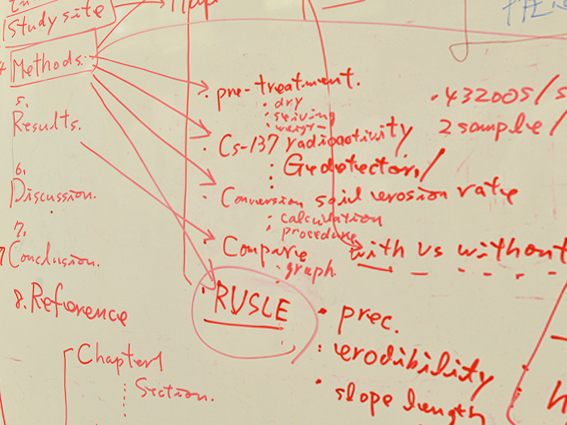 Study site
Methods.
5.
Results.
6.
Discussion.
7.
Conclusion.
8. Reference
Chapter1
Section.
· pre-treatment.
· dry
· Cs-137 radioactivity
· Conversion soil erosion rate
: calculation
procedure
· Compare
graph
with vs without
· RUSLE
· prec.
: erodibility
· slope length
· 43200s/s
2sample/